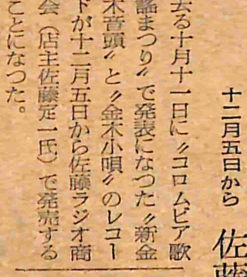 十二月五日から
佐藤
去る十月十一日に〃コロムビア歌
謡まつり〃で発表になつた〃新金
木音頭〃と〃金木小唄〃のレコー
ドが十二月五日から佐藤ラジオ商
会（店主佐藤定一氏）で発売する
ことになつた。